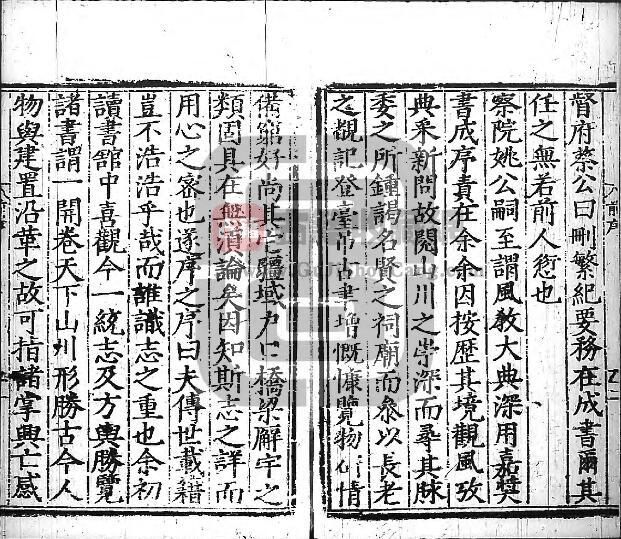 督府蔡公曰刪繁紀要務在成書爾其
任之無若前人愆也
察院姚公嗣至謂風教大典深用嘉奬
書成序責在余余因按歷其境觀風攷
典釆新問故閱山川之崇深而尋其脉
委之所鍾謁名賢之祠廟而叅以長老
之覩記登臺吊古畫增慨慷覽物 情
備貌好尚其它疆域 口橋梁廨宇之
類固具在無瀆論矣因知斯志之詳而
用心之密也遂序之序曰夫傳世載籍
豈不浩浩乎哉而誰識志之重也余初
讀書舘中喜觀今一統志及方輿勝覽
諸書謂一開卷天下山川形勝古今人
物與建置沿革之故可指諸掌興亡感